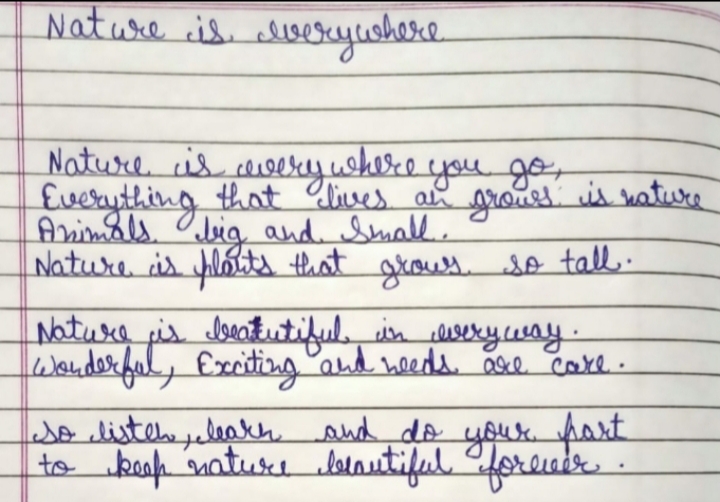 Nature is everywhere
Nature is everywhere you go,
Everything that lives an grows is nature
Animals big and Small.
Nature is plants that grows so tall.
Nature is beatutiful in everyway.
Wonderful, Exciting and needs are care.
so listen, learn and do your part
to keep nature beautiful forever.